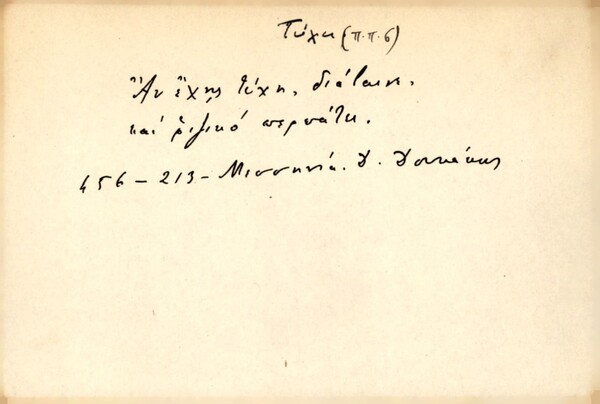 Τύχη (π.π. 6)
Ἂν ἔχῃς τύχη, διάβαινε,
καὶ ῥιζικό περπάτει.
456 – 213 – Μεσσηνία. Δ. Δουκάκης